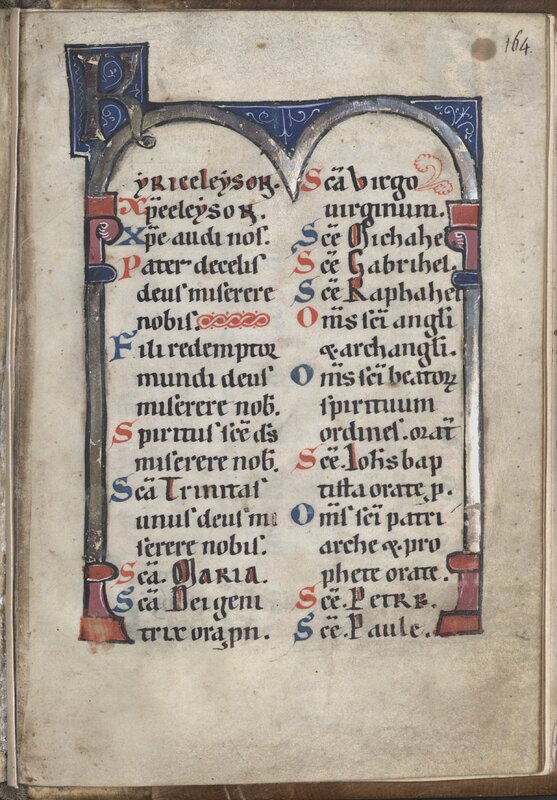 164.
Kyrieeleyson.
Xp̄eeleyson.
Xp̄e audi nos.
Pater decelis
deus miserere
nobis.
Fili redemptoꝝ
mundi deus
miserere nob̄.
Spiritus sc̄e ds̄
miserere nob̄.
Sc̄a Trinitas
unus deus mi
serere nobis.
Sc̄a. MARIA.
Sc̄a Dei geni
trix ora ꝓn.
Sc̄a Virgo
uirginum.
Sc̄e Michahel
Sc̄e Gabrihel.
Sc̄e Raphahel
Om̄s sc̄i angl̄i
& archangl̄i.
Om̄s sc̄i beatoꝝ
spirituum
ordines. orat̄
Sc̄e. Ioh̄s bap
tista orate, p.
Om̄s sc̄i patri
arche & pro
phete orate.
Sc̄e. PETRE.
Sc̄e. Paule.